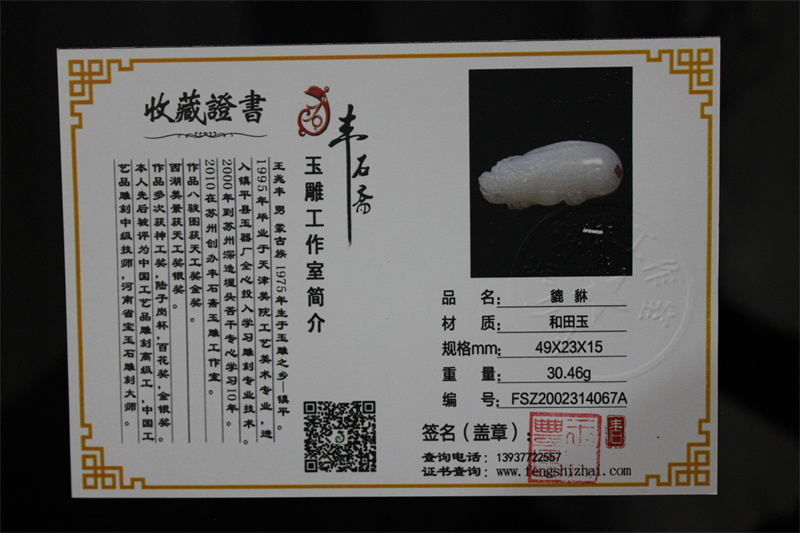 收藏證書
丰石斋
玉雕工作室简介
王兆丰 男 蒙古族 1975年生于玉雕之乡—镇平。
1995年毕业于天津美院工艺美术专业，进
入镇平县玉器厂全心投入学习雕刻专业技术。
2000年到苏州深造埋头苦干专心学习10年。
2010在苏州创办丰石斋玉雕工作室。
作品八骏图获天工奖金奖。
西湖美景获天工奖银奖。
作品多次获神工奖，陆子岗杯，百花奖，金银奖。
本人先后被评为中国工艺品雕刻高级工，中国工
艺品雕刻中级技师，河南省宝玉石雕刻大师。
品 名： 貔貅
材 质： 和田玉
规格mm： 49X23X15
重 量： 30.46g
编 号： FSZ2002314067A
签名（盖章）：
查询电话：13937722557
证书查询：www.fengshizhai.com